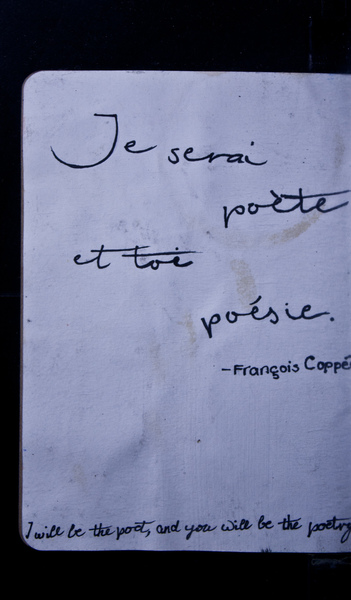 Je serai
poète
et toi
poésie.
-François Coppé
I will be the poet, and you will be the poetry